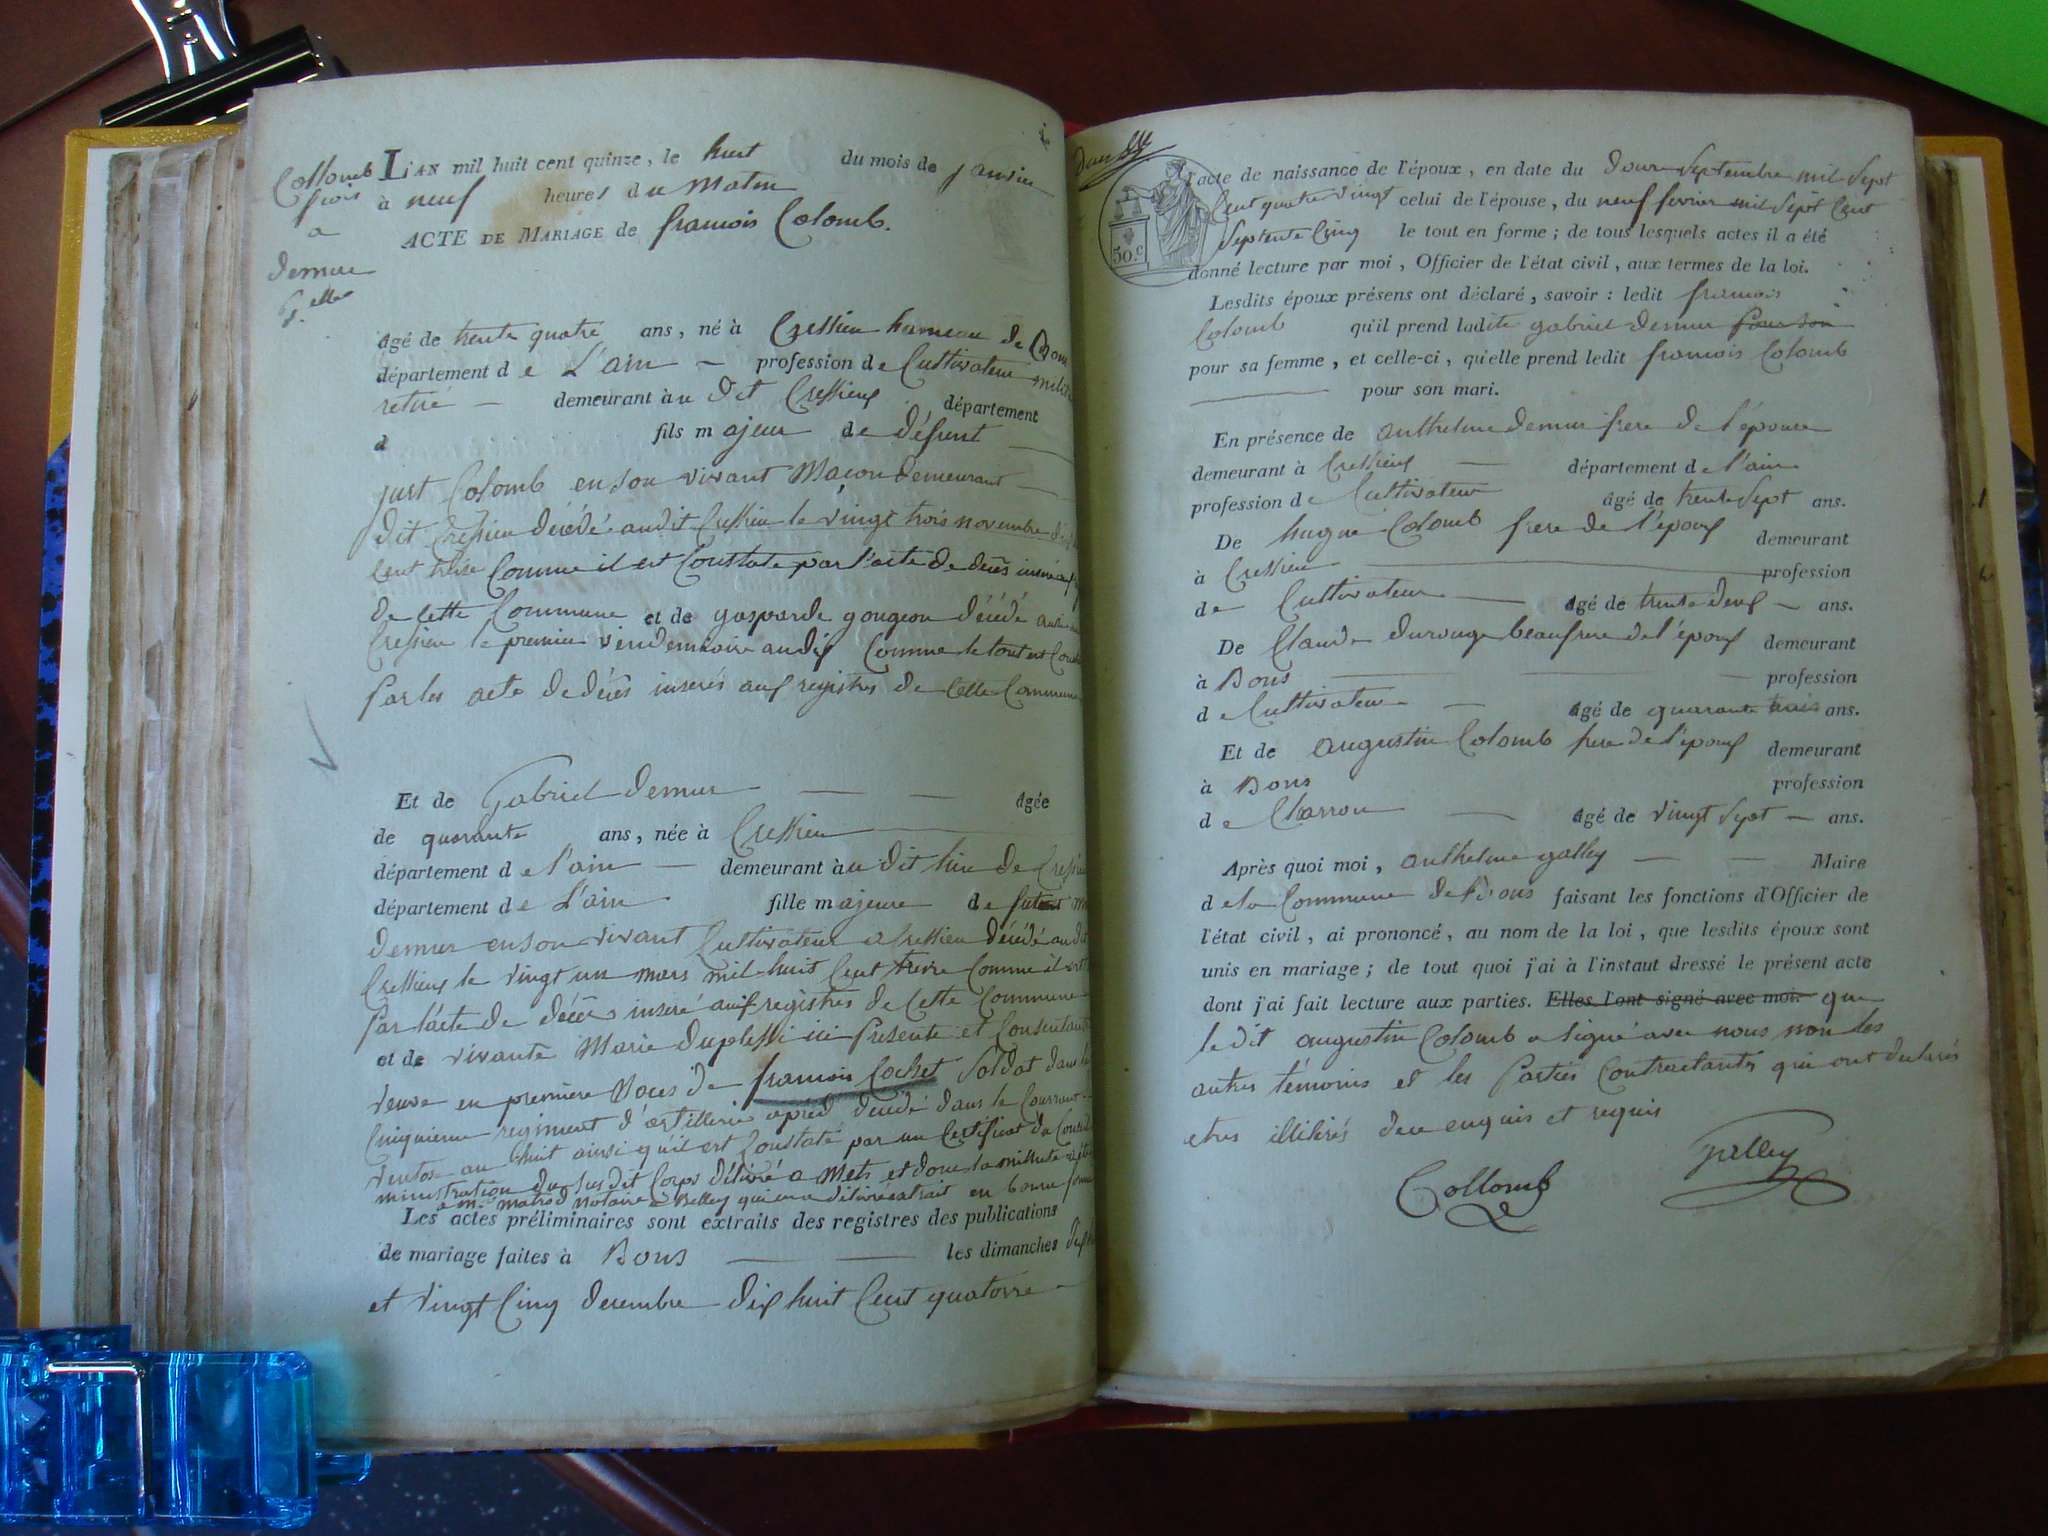 Collomb
fçois
a
demur
G.elle
L'AN mil huit cent quinze, le huit du mois de janvier
à neuf heures du Matin
ACTE DE MARIAGE de francois Colomb.
Agé de trente quatre ans, né à Cressieu hameau de
département de L'ain profession de Cultivateur
retiré demeurant au dit Cressieux département
d fils majeur de défunt
just Colomb en son vivant Maçon demeurant
dit Cressieu décédé audit Cressieu le vingt trois novembre
Cent treise Comme il est Constate par l'acte de decès inseré
de cette Commune et de gasparde gougeon décédé
Cressieu le premier vendemiaire an dix Comme le tout est
Par les acte de decès inserés aux registres de cette Commune
Et de Gabriel demur Agée
de quarante ans, née à Cressieu
département de l'ain demeurant au dit lieu de
département de L'ain fille majeure de
demur en son vivant Cultivateur a Cressieu décédé
Cressieux le vingt un mars mil huit Cent treize Comme il est
Par l'acte de décès inseré aux registres de Cette Commune
et de vivante Marie duplessi ici Presente et Consentante
veuve en premiere Noces de francois Cochet Soldat dans
Cinquieme regiment d'artillerie apied décédé dans le Courrant
ventose an huit ainsi qu'il est Constaté par un Certificat du
ministration du susdit Corps délivré a Mets et dont la minutte
a Mr notaire a Belley qui en a délivré extrait en bonne forme
Les actes préliminaires sont extraits des registres des publications
de mariage faites à Bons les dimanches
et vingt Cinq decembre dix huit Cent quatorze
50.c
l'acte de naissance de l'époux, en date du douze Septembre mil Sept
Cent quatre vingt celui de l'épouse, du neuf fevrier mil Sept Cent
Septente Cinq le tout en forme; de tous lesquels actes il a été
donné lecture par moi, Officier de l'état civil, aux termes de la loi.
Lesdits époux présens ont déclaré, savoir: ledit francois
Colomb qu'il prend ladite gabriel demur pour son
pour sa femme, et celle-ci, qu'elle prend ledit francois Colomb
pour son mari.
En présence de anthelme demur frere de l'épouse
demeurant à Cressieux département de l'ain
profession de Cultivateur âgé de trente Sept ans.
De hugue Colomb frere de l'époux demeurant
à Cressieu profession
de Cultivateur Agé de trente deux ans.
De Claude durouge beaufrere de l'époux demeurant
à Bons profession
de Cultivateur Agé de quarante trois ans.
Et de augustin Colomb frere de l'époux demeurant
à Bons profession
de Charron Agé de vingt Sept ans.
Après quoi moi, anthelme galley Maire
de la Commune de Bons faisant les fonctions d'Officier de
l'état civil, ai prononcé, au nom de la loi, que lesdits époux sont
unis en mariage; de tout quoi j'ai à l'instaut dressé le présent acte
dont j'ai fait lecture aux parties. Elles l'ont signé avec moi. que
le dit augustin Colomb a signé avec nous non les
autres témoins et les Parties Contractantes qui ont declarés
etres illiterés de ce enquis et requis
Collomb
galley